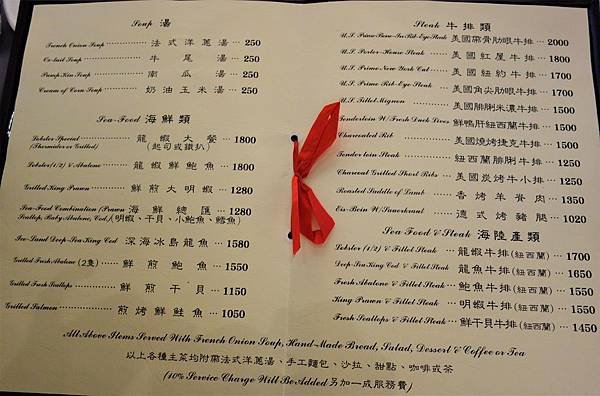 Soup 湯
French Onion Soup 法式洋蔥湯 250
Ox-tail Soup 牛尾湯 250
Pump Kin Soup 南瓜湯 250
Cream of Corn Soup 奶油玉米湯 250
Sea-Food 海鮮類
Lobster Special 龍蝦大餐 1800
(Thermidor or Grilled) (起司或鐵扒)
Lobster(1/2) & Abalone 龍蝦鮮鮑魚 1800
Grilled King Prawn 鮮煎大明蝦 1280
Sea-Food Combination (Prawn 海鮮總匯 1280
Scallop, Baby Abalone, Cod,) (明蝦、干貝、小鮑魚、鱈魚)
Ice-Land Deep-Sea King Cod 深海冰島龍魚 1580
Grilled Fresh Abalone (2隻) 鮮煎鮑魚 1550
Grilled Fresh Scallops 鮮煎干貝 1150
Grilled Salmon 煎烤鮮鮭魚 1050
Steak 牛排類
U.S. Prime Bone-In Rib-Eye Steak 美國帶骨肋眼牛排 2000
U.S. Porter-House Steak 美國紅屋牛排 1800
U.S. Prime New York Cut 美國紐約牛排 1700
U.S. Prime Rib-Eye Steak 美國角尖肋眼牛排 1700
U.S. Fillet Mignon 美國腓脷米濃牛排 1500
Tenderloin W/Fresh Duck Liver 鮮鴨肝紐西蘭牛排 1500
Charcoaled Rib 美國燒烤捷克牛排 1500
Tenderloin Steak 紐西蘭腓脷牛排 1250
Charcoal Grilled Short Ribs 美國炭烤牛小排 1250
Roasted Saddle of Lamb 香烤羊脊肉 1350
Eis-Bein W/Sauerkraut 德式烤豬腿 1020
Sea Food & Steak 海陸產類
Lobster (1/2) & Fillet Steak 龍蝦牛排(紐西蘭) 1700
Deep-Sea King Cod & Fillet Steak 龍魚牛排(紐西蘭) 1650
Fresh Abalone & Fillet Steak 鮑魚牛排(紐西蘭) 1550
King Prawn & Fillet Steak 明蝦牛排(紐西蘭) 1550
Fresh Scallops & Fillet Steak 鮮干貝牛排(紐西蘭) 1450
All Above Items Served With French Onion Soup, Hand-Made Bread, Salad, Dessert & Coffee or Tea
以上各種主菜均附帶法式洋蔥湯、手工麵包、沙拉、甜點、咖啡或茶
(10% Service Charge Will Be Added 另加一成服務費)